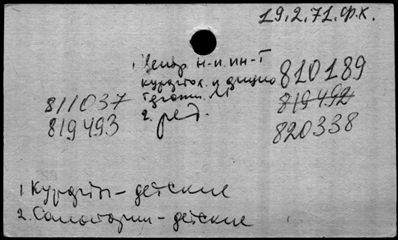 19.2.71.ф.к.
1. Центр. н-и. ин-т
курортол. и физио
терапии. М
2. ред.
810189
819492
820338
811037
819493
1. Курорты - детские
2. Санатории - детские